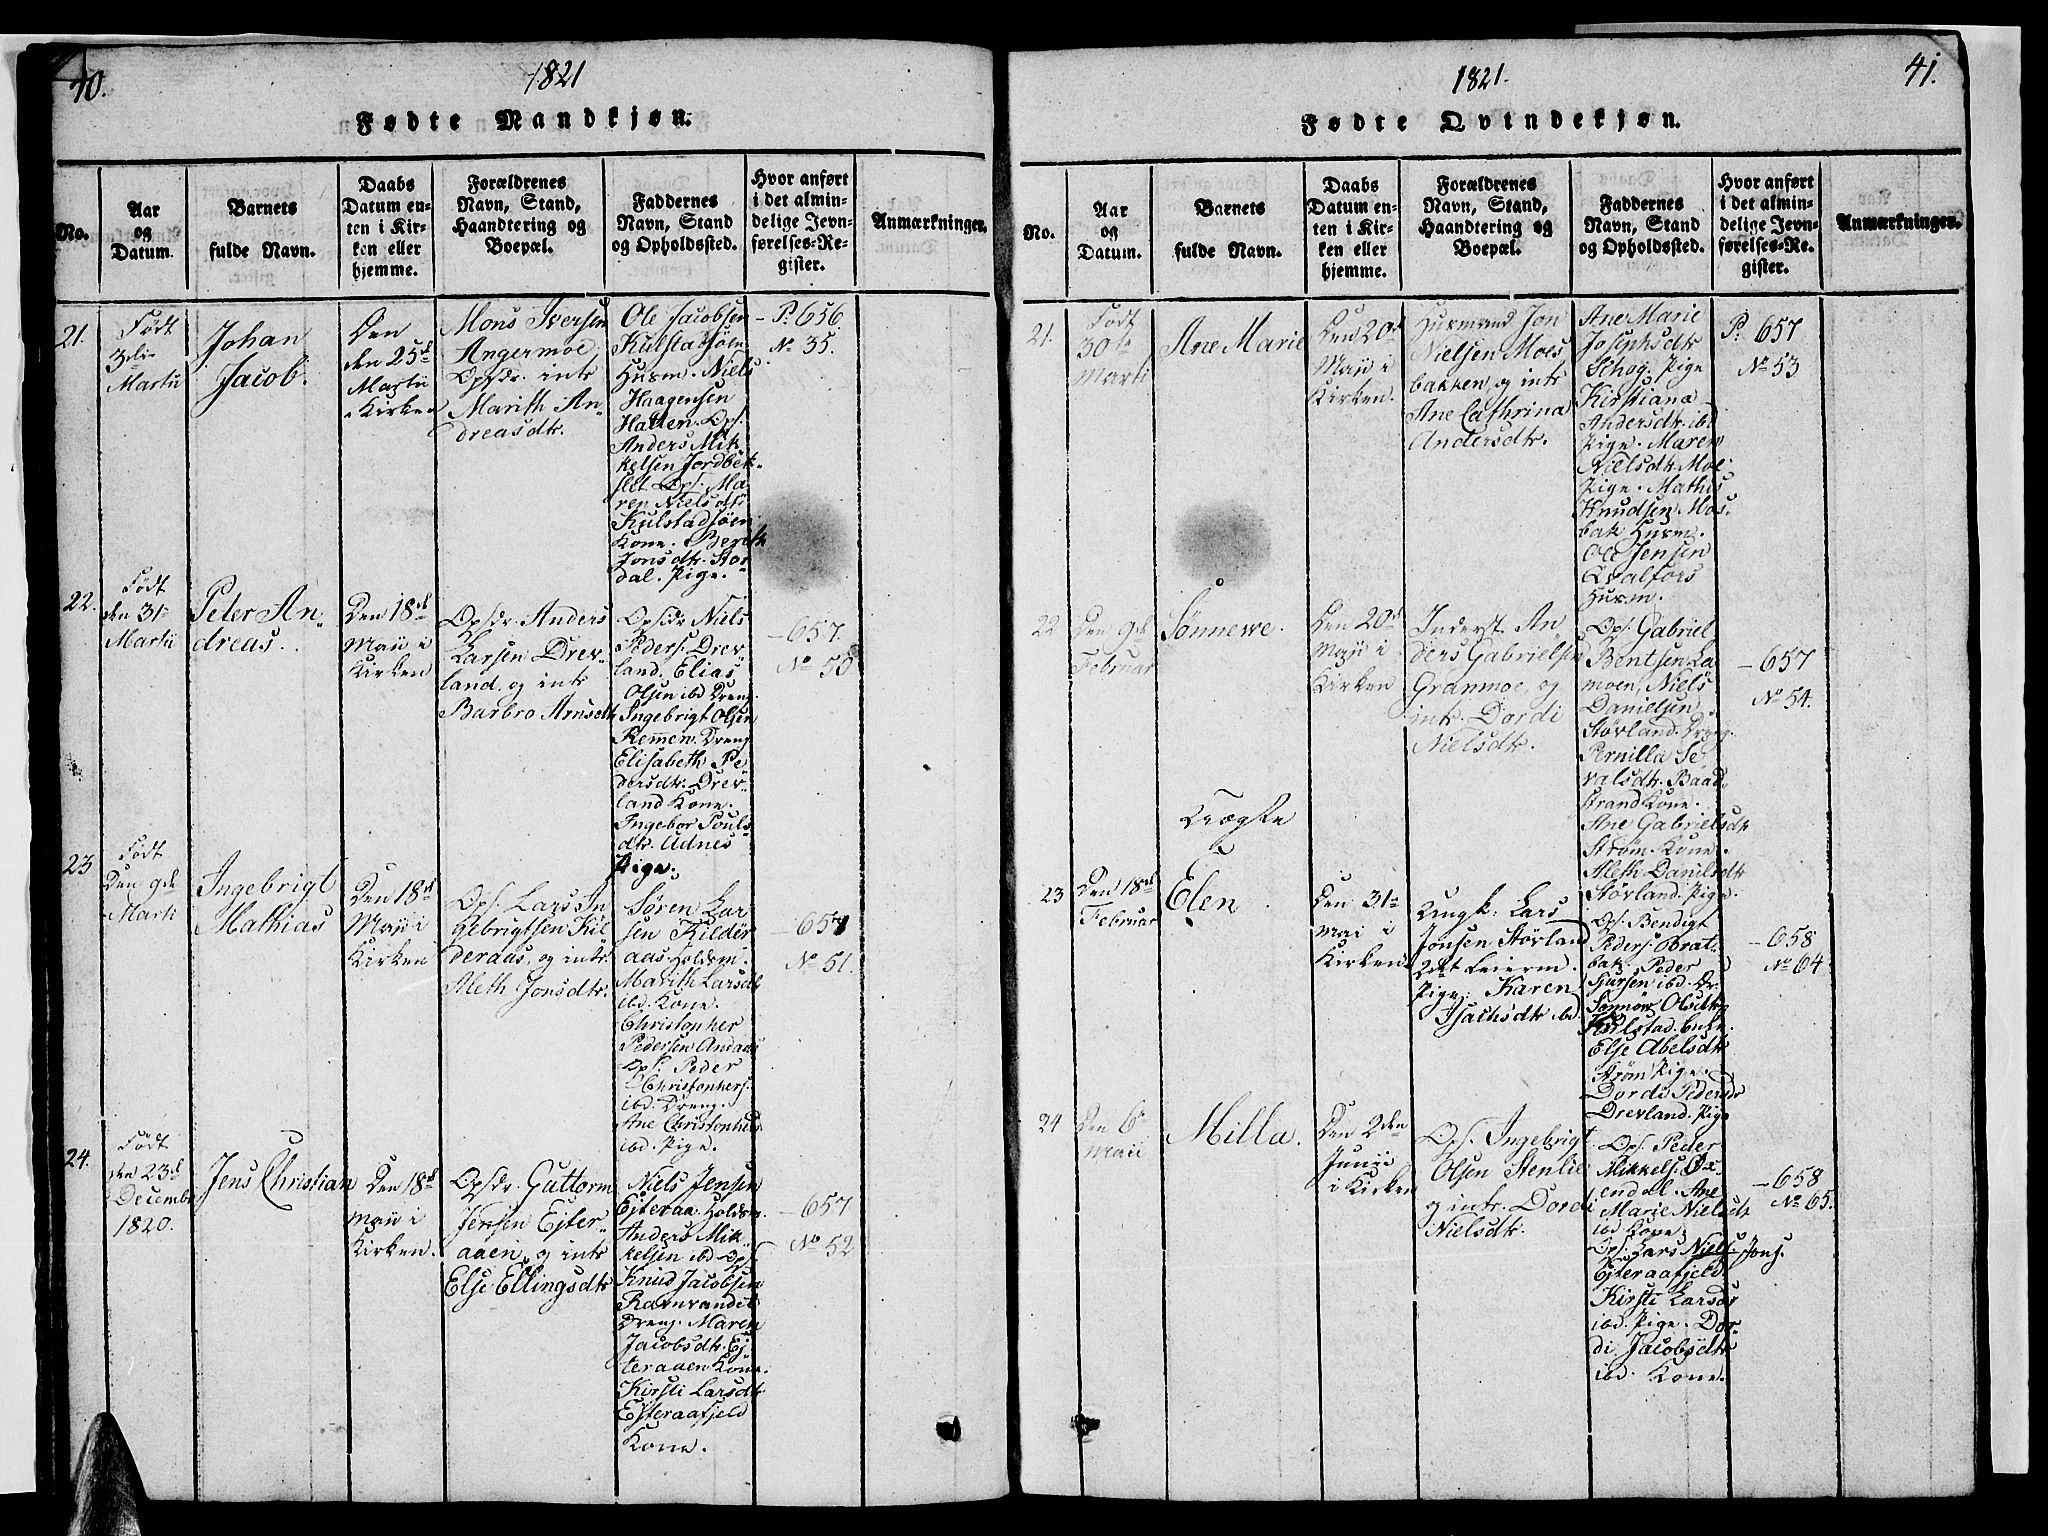 40.
1821
Fødte Mandkjøn.
No.
Aar
og
Datum.
Barnets
fulde Navn.
Daabs
Datum en-
ten i Kir-
ken eller
hjemme.
Forældrenes
Navn, Stand,
Haandtering og
Boepæl.
Faddernes
Navn, Stand
og Opholdssted.
Hvor anført
i det almin-
delige Jevn-
førelses-Re-
gister.
Anmærkninger.
21.
Født
3die
Martii
Johan
Jacob.
Den
den 25de
Martii
Kirken
Mons Iversen
Angermoe
Opsdr. intr
Marith An-
dreasdtr.
Ole Jacobsen
Kulstadsøen
Husm. Niels
Haagensen
Halten. Ops.
Anders Mik-
kelsen Jordbek-
slet Ops. Ma-
ren Nielsdtr
Kulstadsøen
Kone. Bereth
Jonsdtr. Stor-
dal. Pige.
P. 656
No 35.
22.
Født
den 31te
Martii
Peter An-
dreas.
Den 18de
Maii i
Kirken
Opsdr. Anders
Larsen Drev-
land. og intr
Barbro Arnsdtr
Opsdr Niels
Peders. Drev-
land. Elias
Olsen ibd Dreng.
Ingebrigt Olsen
Remen. Dreng
Elisabeth Pe-
dersdtr. Drev-
land Kone.
Ingebor Pouls-
dtr. Adnes
Pige.
- 657.
No 50
23
Født
Den 9de
Marti
Ingebrigt
Mathias
Den 18de
Maii i
Kirken
Ops. Lars In-
gebrigtsen Kil-
deraas, og intr.
Aleth Jonsdtr.
Søren Lar-
sen Kilder-
aas. Holdsm.
Marith Larsdtr
ibd. Kone.
Christopher
Pedersen Andaas
Ops. Peder
Christophers.
ibd. Dreng.
Ane Christophersd
ibd. Pige.
- 657
No 51.
24.
Født
den 23de
December
1820.
Jens Christian
Den 18de
Maii i
Kirken.
Opsdr. Guttorm
Jensen Ejter-
aaen, og intr
Else Ellingsdtr
Niels Jensen
Ejteraa. Holdsm.
Anders Mik-
kelsen ibd Ops
Knud Jacobsen
Ravnvandet
Dreng. Maren
Jacobsdtr. Ej-
teraaen Kone.
Kirsti Larsdtr
Ejteraafjeld
Kone.
- 657
No 52
41.
1821.
Fødte Qvindekjøn.
No.
Aar
og
Datum.
Barnets
fulde Navn.
Daabs
Datum en-
ten i Kir-
ken eller
hjemme.
Forældrenes
Navn, Stand,
Haandtering og
Boepæl.
Faddernes
Navn, Stand
og Opholdssted.
Hvor anført
i det almin-
delige Jevn-
førelses-Re-
gister.
Anmærkninger.
21.
Født
30te
Marti
Ane Marie
Den 20de
Maii i
Kirken.
Husmand Jon
Nielsen Moes-
bakken, og intr
Ane Cathrina
Andersdtr.
Ane Marie
Josephsdtr
Schog. Pige
Kirstiana
Andersdtr. ibd
Pige. Maren
Nielsdtr. Moe
Pige. Mathis
Knudsen Mos-
bak Husm.
Ole Jensen
Qvalfors
Husm.
P. 657
No 53
22
Den 9de
Februar
Sønnewe.
Den 20de
Maii i
Kirken
Inderst An-
ders Gabrielsen
Granmoe, og
intr. Dordi
Nielsdtr.
Ops. Gabriel
Bentsen La-
moen, Niels
Danielsen
Størland. Dreng.
Pernilla Se-
valsdtr. Baad-
strand Kone.
Ane Gabrielsdtr
Strøm. Kone.
Aleth Danilsdtr
Størland. Pige.
- 657
No 54.
Uægte
23
Den 18de
Februar
Elen
Den 31te
Mai i
Kirken
Ungk: Lars
Jonsen Størland
2det Leierm.
Pige. Karen
Isachsdtr ibd.
Ops. Bendigt
Peders. Brat-
bak. Peder
Sjursen ibd. Dr.
Sønnøv Olsdtr
Kulstad. Enke.
Else Abelsdtr
Strøm Pige.
Dordi Pedersdr
Drevland. Pige
- 658
No 64
24
Den 6te
Maii
Milla.
Den 2den
Junii
i Kirken
Ops. Ingebrigt
Olsen Stenlie
og intr. Dordi
Nielsdtr.
Ops. Peder
Mikkels. Øx-
endal. Ane
Marie Nielsdtr
ibd Kone.
Ops. Lars Niels. Jons.
Ejteraafjeld
Kirsti Larsdr
ibd. Pige. Dor-
di. Jacobsdtr
ibd. Kone.
- 658
No 65.